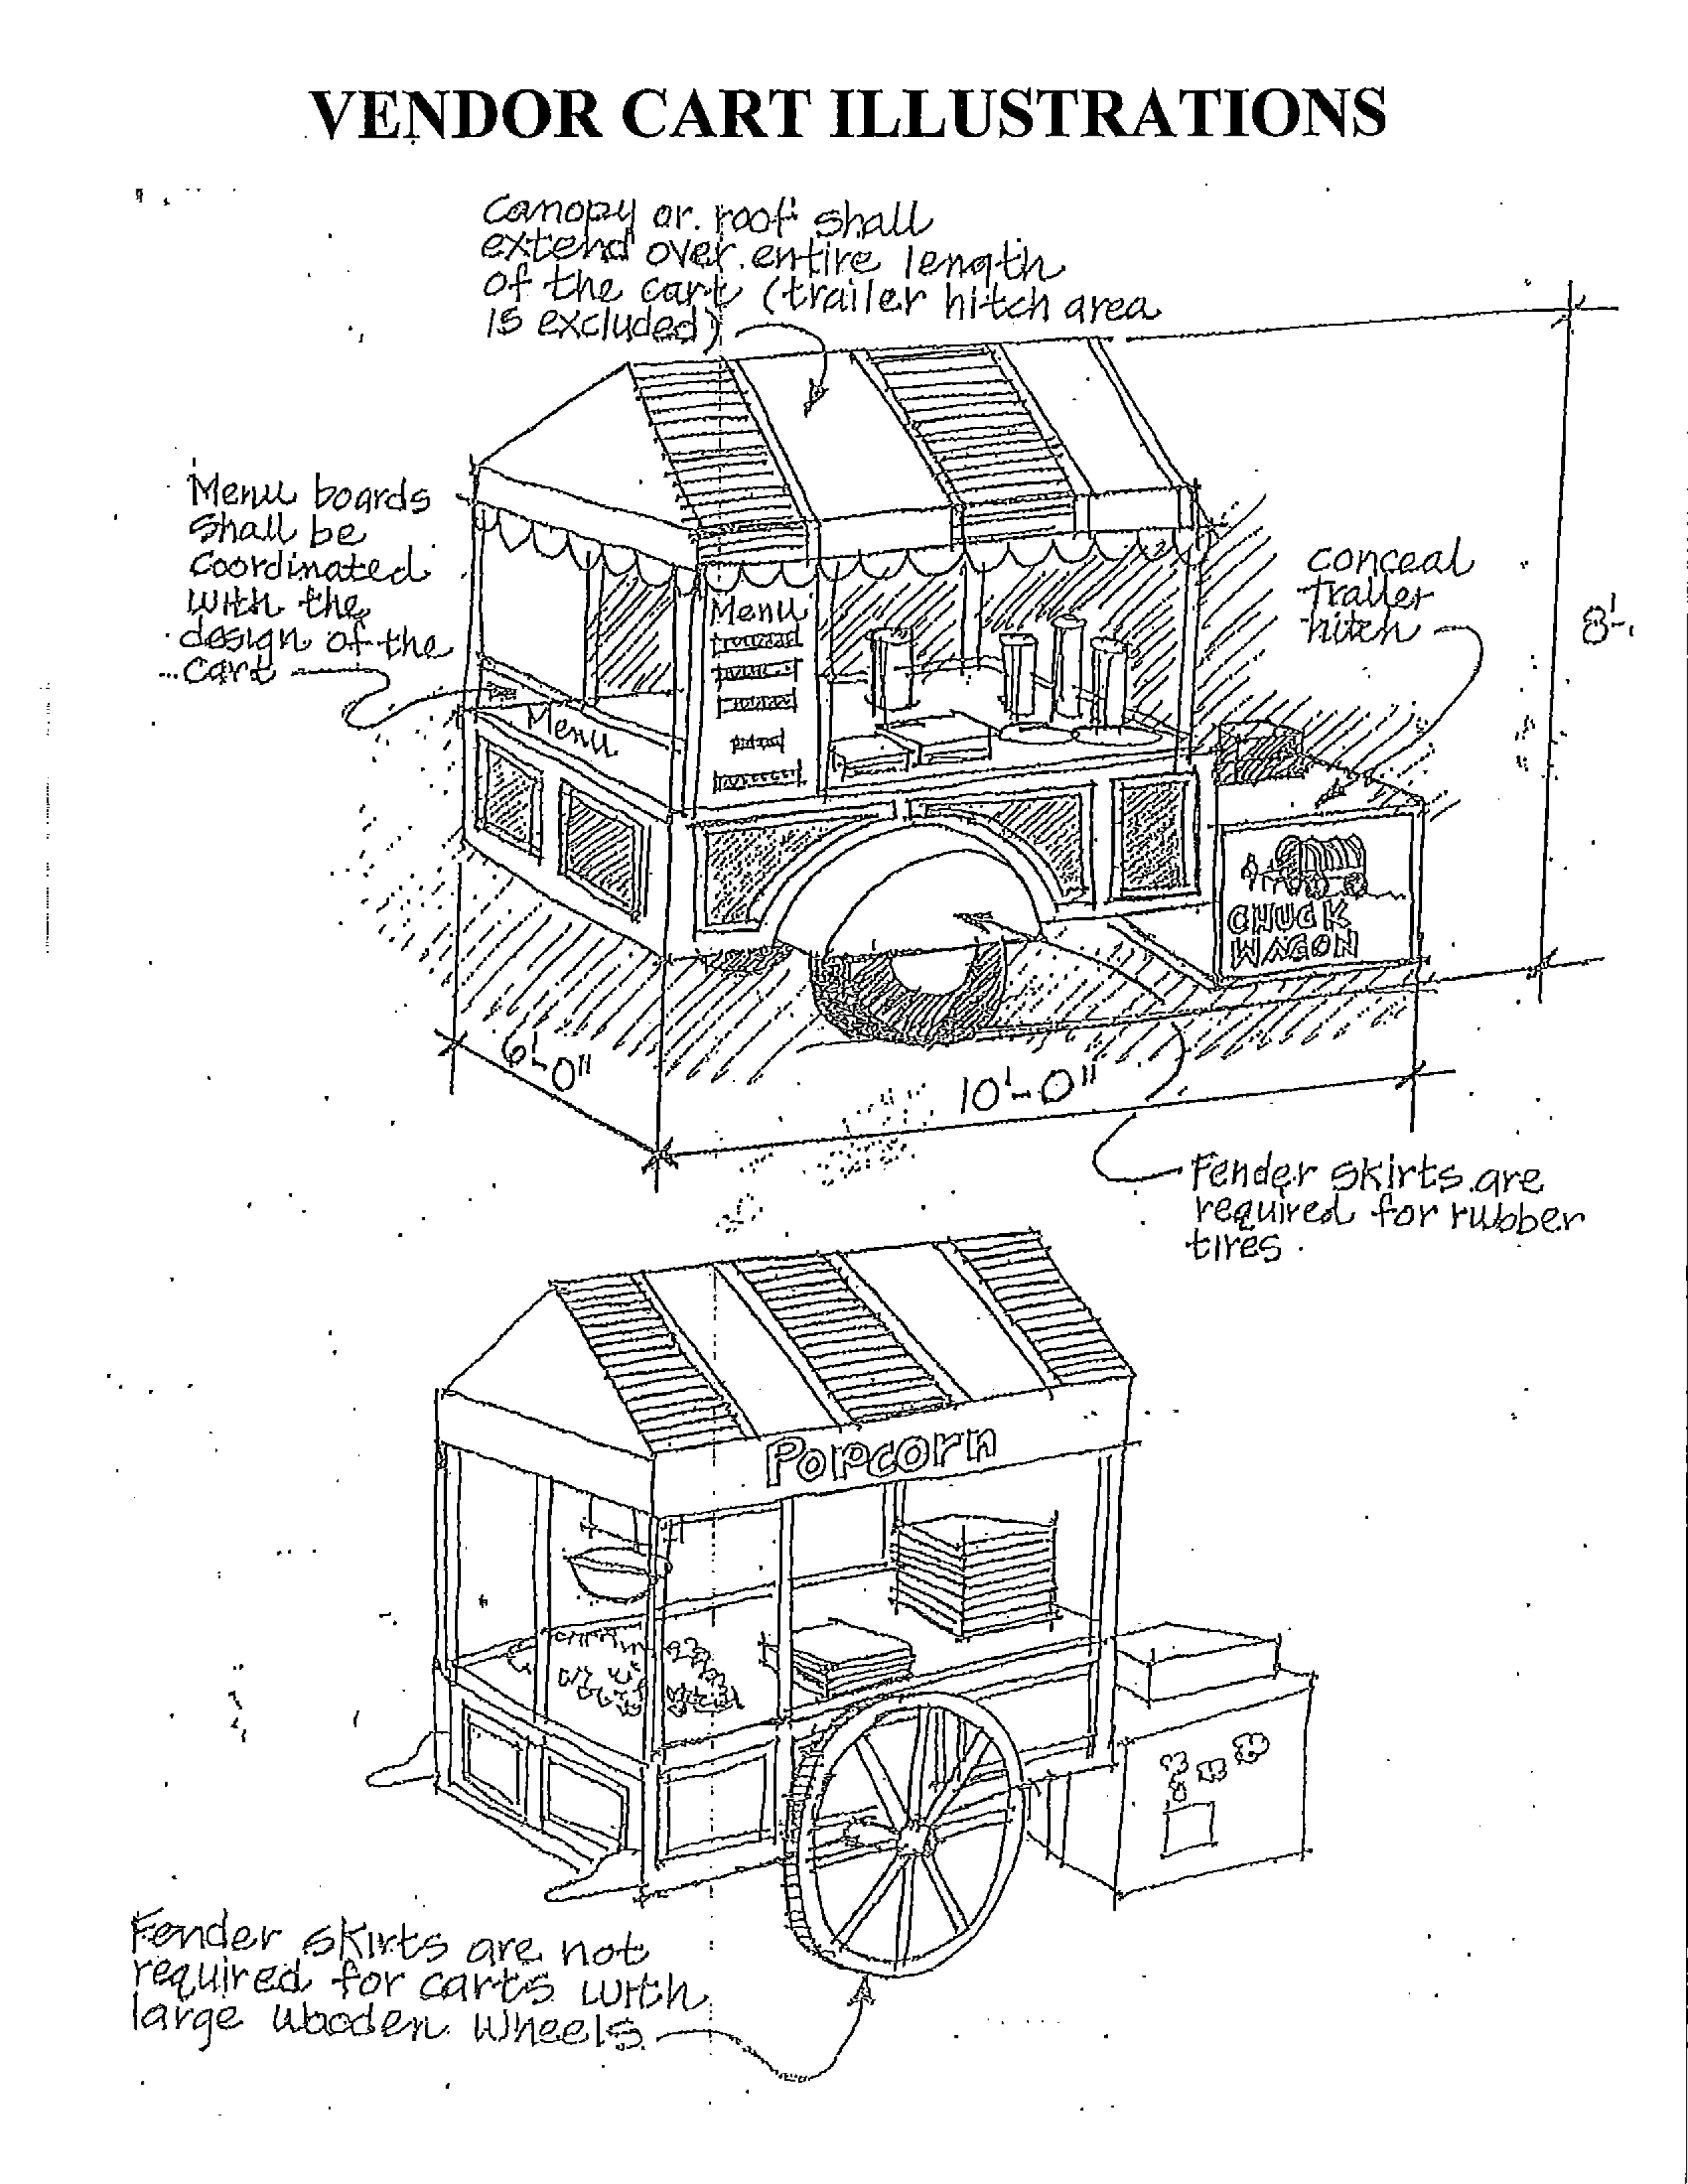 VENDOR CART ILLUSTRATIONS
Canopy or roof shall
extend over entire length
of the cart (trailer hitch area
is excluded)
Menu boards
shall be
coordinated
with the
design of the
cart
conceal
trailer
hitch
8'-
Menu
Menu
CHUCK
WAGON
6'-0"
10'-0"
Fender skirts are
required for rubber
tires
Popcorn
Fender skirts are not
required for carts with
large wooden wheels